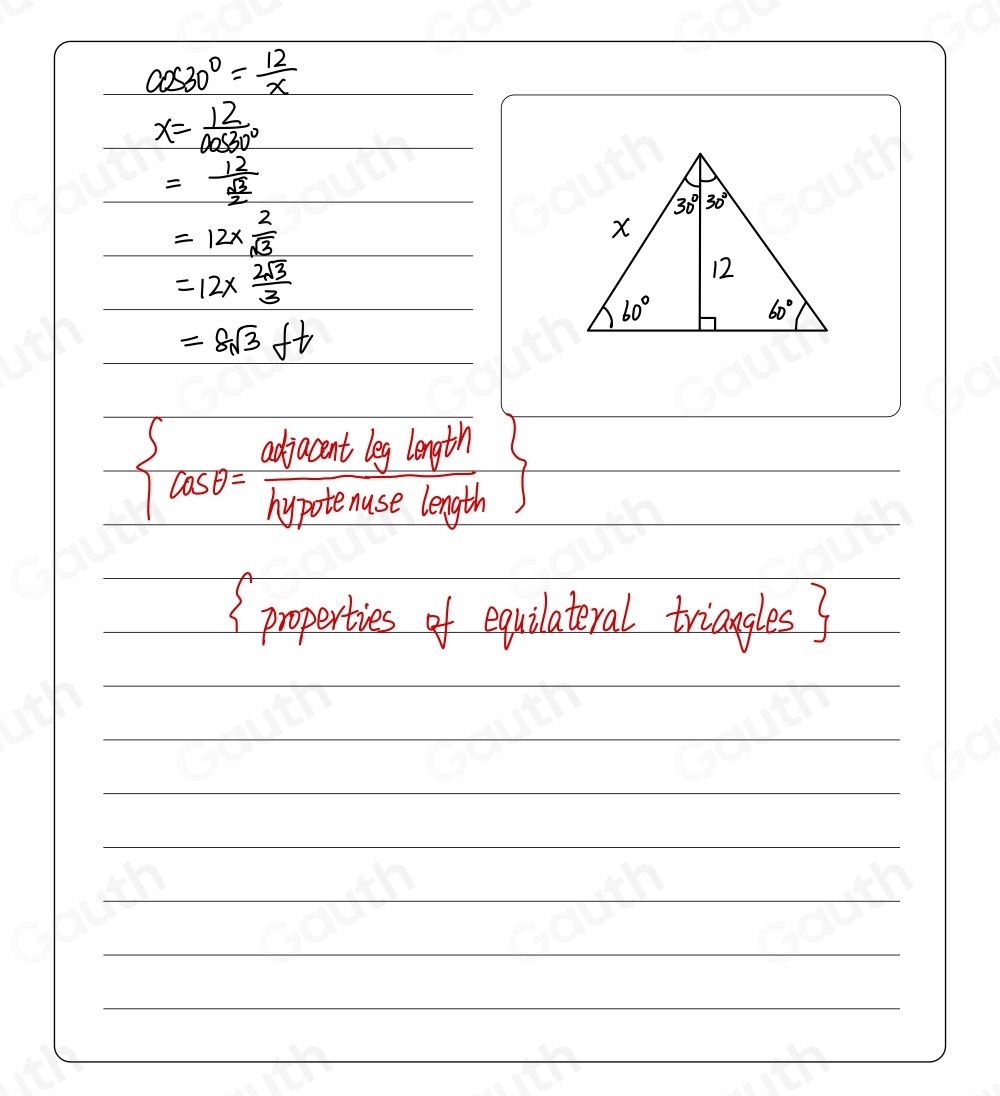 cos30° = 12/x
x = 12/cos30°
= 12/(√3/2)
= 12 × 2/√3
= 12 × 2√3/3
= 8√3 ft
x
30° 30°
12
60° 60°
{ cosθ = adjacent leg length / hypotenuse length }
{ properties of equilateral triangles }
Gauth